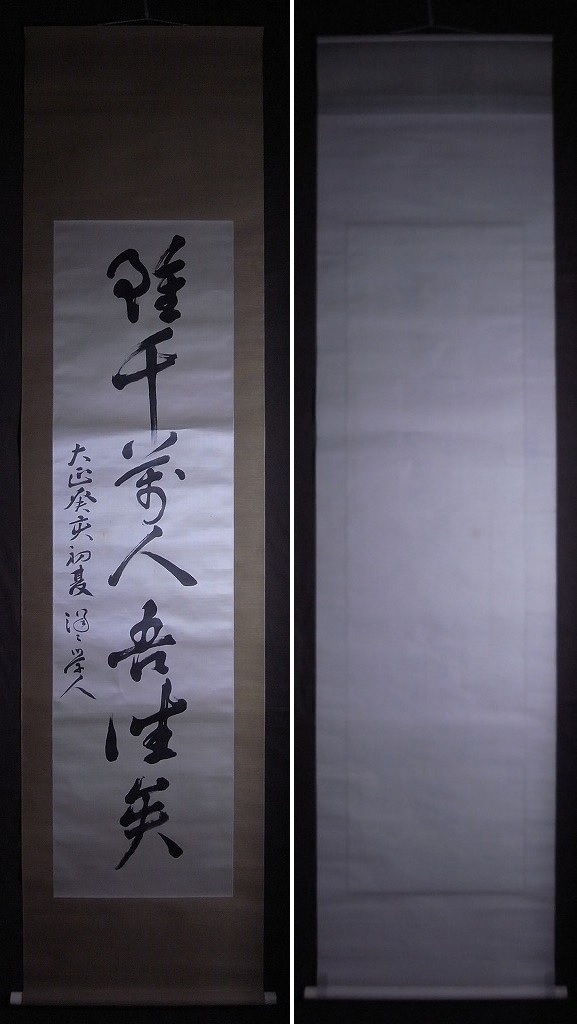 雖千萬人吾往矣
大正癸亥初夏 学人